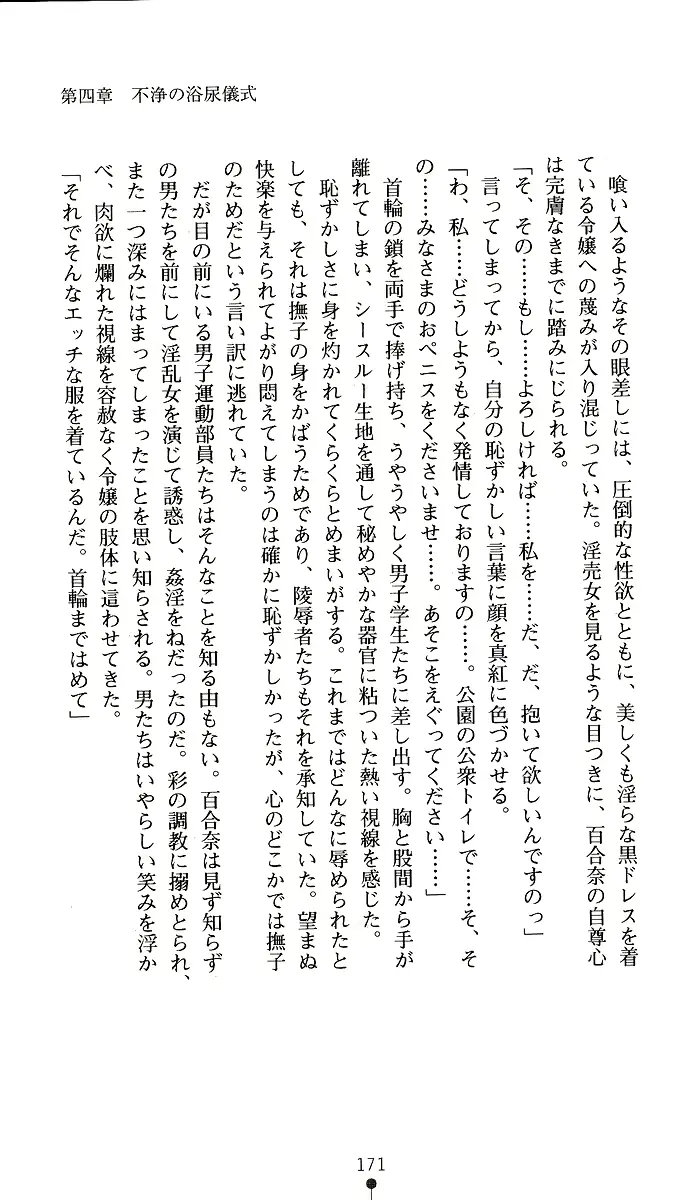 第四章　不浄の浴尿儀式
喰い入るようなその眼差しには、圧倒的な性欲とともに、美しくも淫らな黒ドレスを着
ている令嬢への蔑みが入り混じっていた。淫売女を見るような目つきに、百合奈の自尊心
は完膚なきまでに踏みにじられる。
「そ、その……もし……よろしければ……私を……だ、だ、抱いて欲しいんですのっ」
言ってしまってから、自分の恥ずかしい言葉に顔を真紅に色づかせる。
「わ、私……どうしようもなく発情しておりますの……。公園の公衆トイレで……そ、そ
の……みなさまのおペニスをくださいませ……。あそこをえぐってください……」
首輪の鎖を両手で捧げ持ち、うやうやしく男子学生たちに差し出す。胸と股間から手が
離れてしまい、シースルー生地を通して秘めやかな器官に粘ついた熱い視線を感じた。
恥ずかしさに身を灼かれてくらくらとめまいがする。これまではどんなに辱められたと
しても、それは撫子の身をかばうためであり、陵辱者たちもそれを承知していた。望まぬ
快楽を与えられてよがり悶えてしまうのは確かに恥ずかしかったが、心のどこかでは撫子
のためだという言い訳に逃れていた。
だが目の前にいる男子運動部員たちはそんなことを知る由もない。百合奈は見ず知らず
の男たちを前にして淫乱女を演じて誘惑し、姦淫をねだったのだ。彩の調教に搦めとられ、
また一つ深みにはまってしまったことを思い知らされる。男たちはいやらしい笑みを浮か
べ、肉欲に爛れた視線を容赦なく令嬢の肢体に這わせてきた。
「それでそんなエッチな服を着ているんだ。首輪まではめて」
171